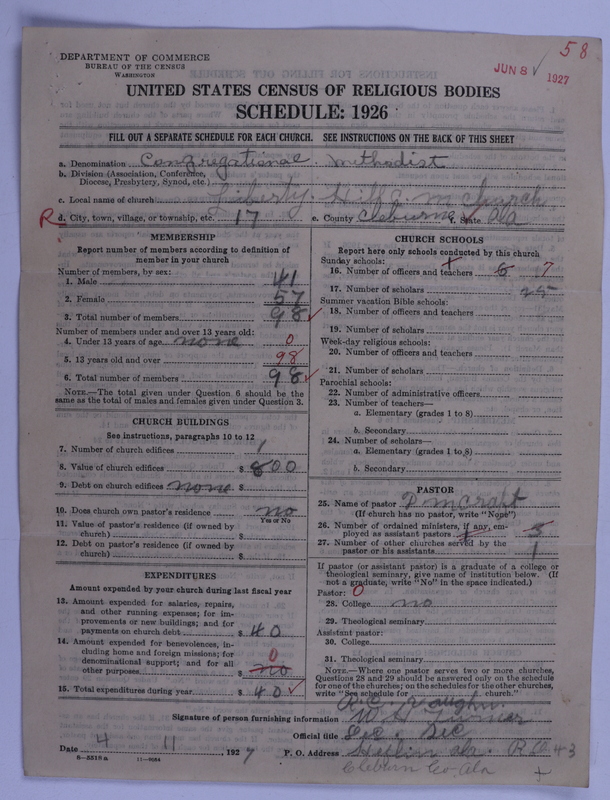 58
DEPARTMENT OF COMMERCE
BUREAU OF THE CENSUS
WASHINGTON
JUN 8 1927
UNITED STATES CENSUS OF RELIGIOUS BODIES
SCHEDULE: 1926
FILL OUT A SEPARATE SCHEDULE FOR EACH CHURCH. SEE INSTRUCTIONS ON THE BACK OF THIS SHEET
a. Denomination Congregational Methodist
b. Division (Association, Conference,
Diocese, Presbytery, Synod, etc.)
c. Local name of church Liberty Hill m church
R d. City, town, village, or township, etc. 17 e. County Cleburne f. State Ala
MEMBERSHIP
Report number of members according to definition of
member in your church
Number of members, by sex:
1. Male 41
2. Female 57
3. Total number of members 98
Number of members under and over 13 years old:
4. Under 13 years of age none 0
5. 13 years old and over 98
6. Total number of members 98
NOTE.—The total given under Question 6 should be
the same as the total of males and females given under Question 3.
CHURCH BUILDINGS
See instructions, paragraphs 10 to 12
7. Number of church edifices 1
8. Value of church edifices $ 800
9. Debt on church edifices none $
10. Does church own pastor's residence no
Yes or No
11. Value of pastor's residence (if owned by
church) $
12. Debt on pastor's residence (if owned by
church) $
EXPENDITURES
Amount expended by your church during last fiscal year
13. Amount expended for salaries, repairs,
and other running expenses; for im-
provements or new buildings; and for
payments on church debt $ 40
14. Amount expended for benevolences, in-
cluding home and foreign missions; for
denominational support; and for all
other purposes $ no 0
15. Total expenditures during year $ 40
CHURCH SCHOOLS
Report here only schools conducted by this church
Sunday schools:
16. Number of officers and teachers 6 7
17. Number of scholars 25
Summer vacation Bible schools:
18. Number of officers and teachers
19. Number of scholars
Week-day religious schools:
20. Number of officers and teachers
21. Number of scholars
Parochial schools:
22. Number of administrative officers
23. Number of teachers—
a. Elementary (grades 1 to 8)
b. Secondary
24. Number of scholars—
a. Elementary (grades 1 to 8)
b. Secondary
PASTOR
25. Name of pastor P McCraft
(If church has no pastor, write "None")
26. Number of ordained ministers, if any, em-
ployed as assistant pastors
27. Number of other churches served by the
pastor or his assistants 1
If pastor (or assistant pastor) is a graduate of a college or
theological seminary, give name of institution below. (If
not a graduate, write "No" in the space indicated.)
Pastor: 0
28. College no
29. Theological seminary
Assistant pastor:
30. College
31. Theological seminary
NOTE.—Where one pastor serves two or more churches,
Questions 28 and 29 should be answered only on the schedule
for one of the churches; on the schedules for the other churches,
write "See schedule for church."
R. C. Vaughn
Signature of person furnishing information W H Turner
Official title Sec.
Date 4 11 1927 P. O. Address Heflin Ala. R 3
Cleburn Co Ala
8—5518a 11—9084